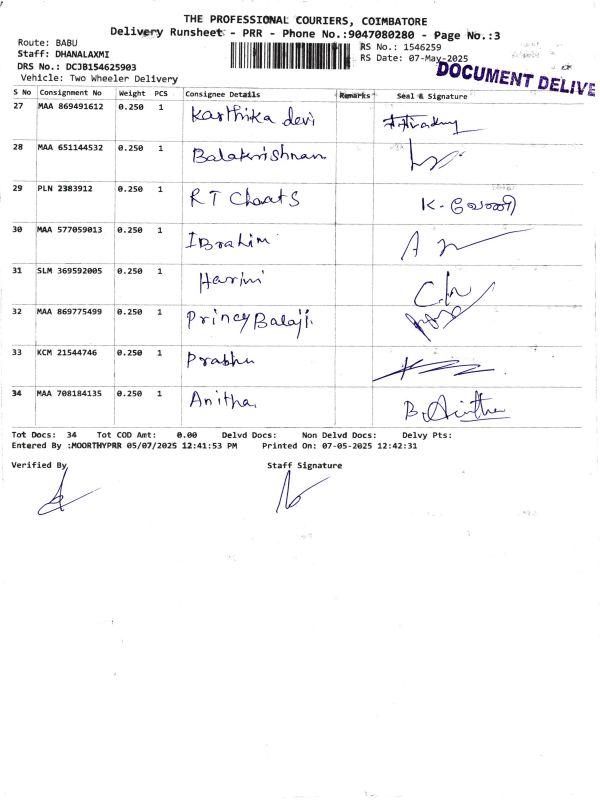 THE PROFESSIONAL COURIERS, COIMBATORE
Delivery Runsheet - PRR - Phone No.:9047080280 - Page No.:3
Route: BABU
Staff: DHANALAXMI
DRS No.: DCJB154625903
Vehicle: Two Wheeler Delivery
RS No.: 1546259
RS Date: 07-May-2025
DOCUMENT DELIVE
S No Consignment No Weight PCS Consignee Details Remarks Seal & Signature
27 MAA 869491612 0.250 1 Karthika devi
28 MAA 651144532 0.250 1 Balakrishnan
29 PLN 2383912 0.250 1 R T Chaats K. வேணி
30 MAA 577059013 0.250 1 IBrahim
31 SLM 369592005 0.250 1 Harini
32 MAA 869775499 0.250 1 Princy Balaji
33 KCM 21544746 0.250 1 Prabhu
34 MAA 708184135 0.250 1 Anitha B. Anitha
Tot Docs: 34 Tot COD Amt: 0.00 Delvd Docs: Non Delvd Docs: Delvy Pts:
Entered By :MOORTHYPRR 05/07/2025 12:41:53 PM Printed On: 07-05-2025 12:42:31
Verified By Staff Signature